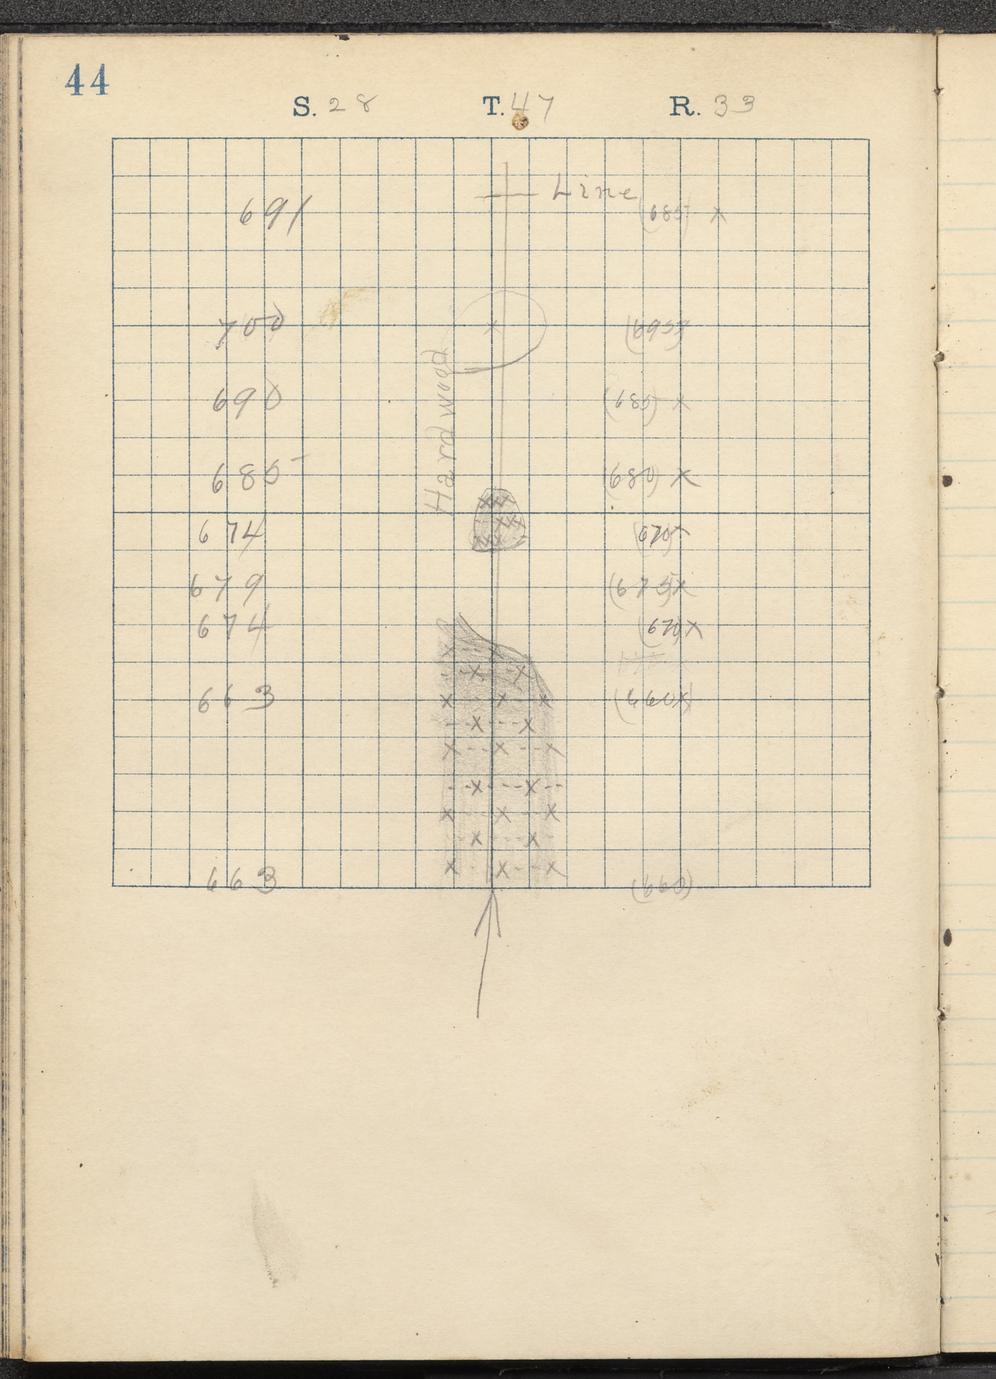 44
S. 28 T. 47 R. 33
Line
691 (685) X
700 X (695)
Hardwood
690 (685) X
685 (680) X
674 (670)
679 (675) X
674 (670) X
663 (660) X
663 (660)